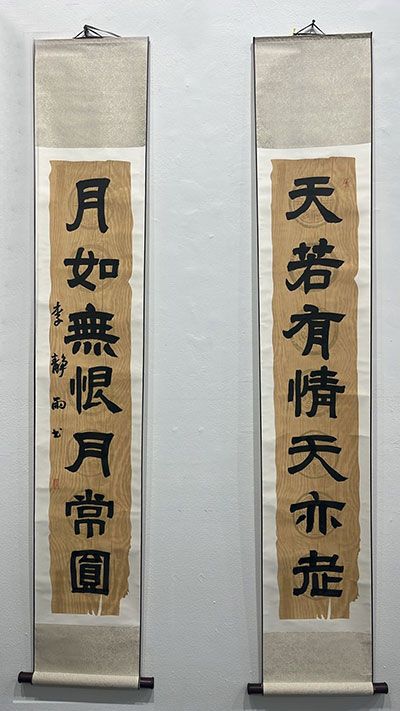 天若有情天亦老
月如無恨月常圓
李靜雨书